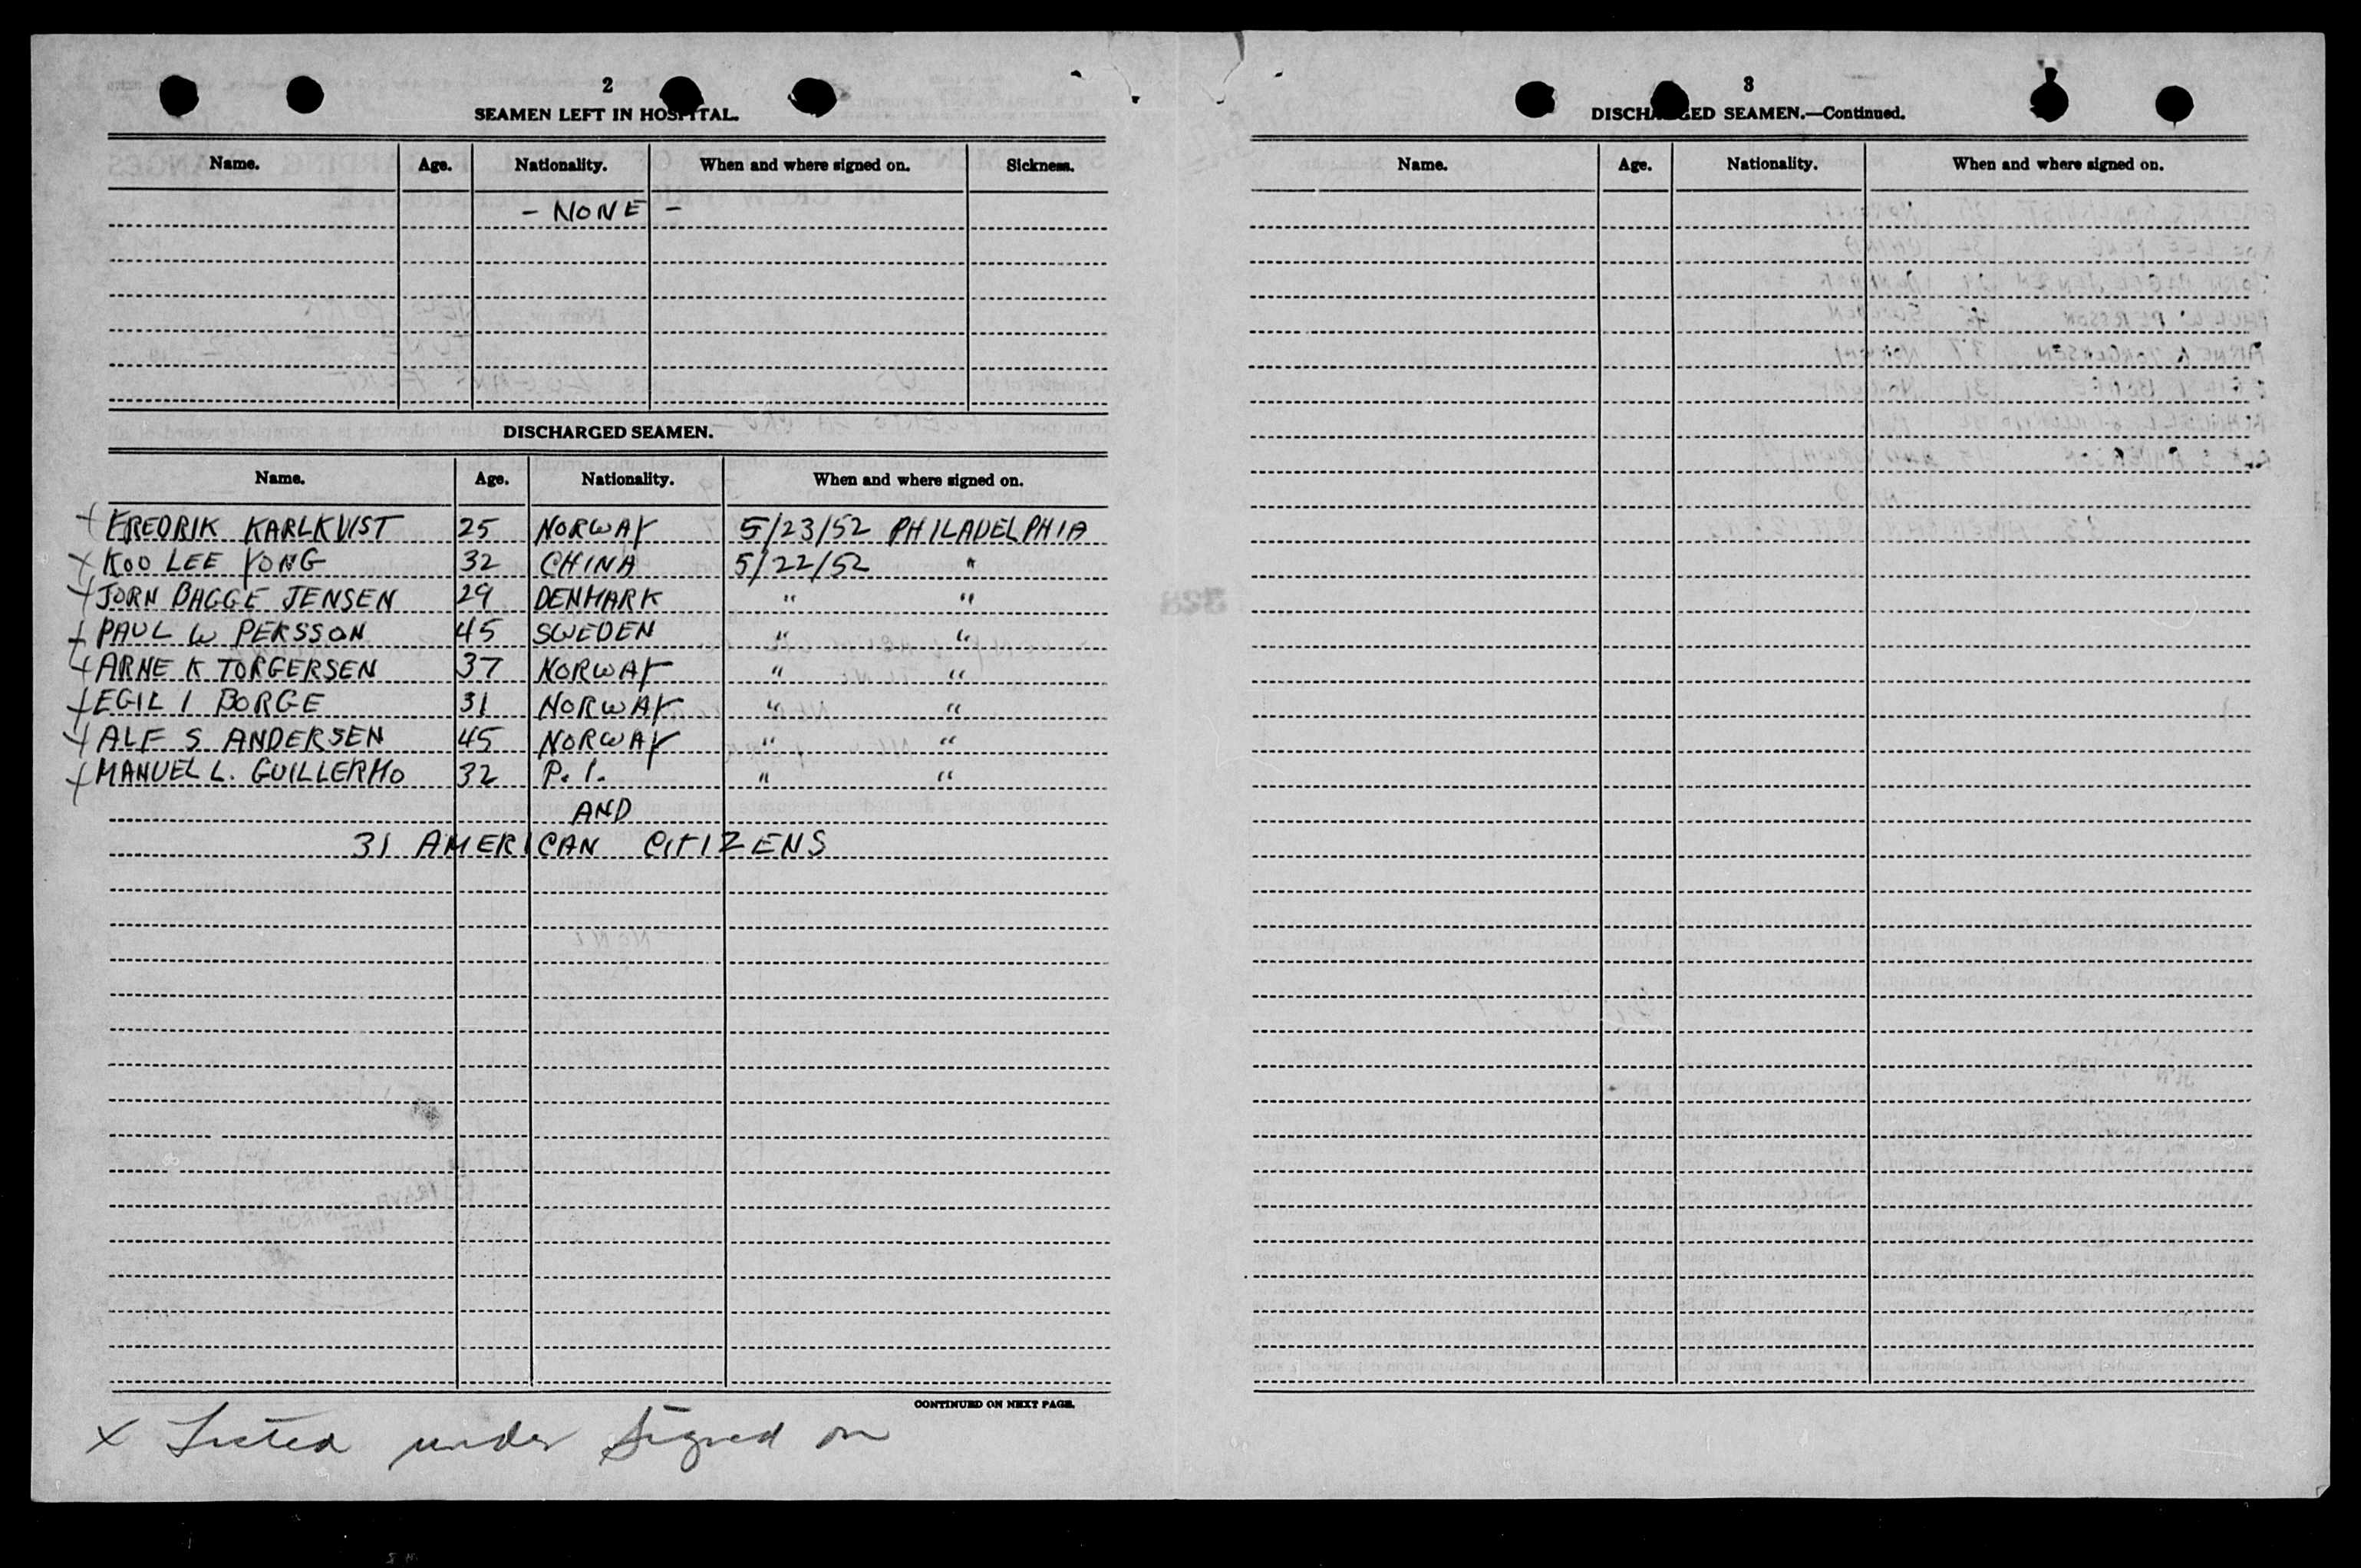 2
SEAMEN LEFT IN HOSPITAL.
Name. Age. Nationality. When and where signed on. Sickness.
- NONE -
DISCHARGED SEAMEN.
Name. Age. Nationality. When and where signed on.
+ FREDRIK KARLKVIST 25 NORWAY 5/23/52 PHILADELPHIA
x KOO LEE YONG 32 CHINA 5/22/52 "
+ JORN BAGGE JENSEN 29 DENMARK " "
+ PAUL W PERSSON 45 SWEDEN " "
+ ARNE K TORGERSEN 37 NORWAY " "
+ EGIL I BORGE 31 NORWAY " "
+ ALF S ANDERSEN 45 NORWAY " "
+ MANUEL L. GUILLERMO 32 P.I. " "
AND
31 AMERICAN CITIZENS
CONTINUED ON NEXT PAGE.
x Listed under Signed on
3
DISCHARGED SEAMEN.—Continued.
Name. Age. Nationality. When and where signed on.